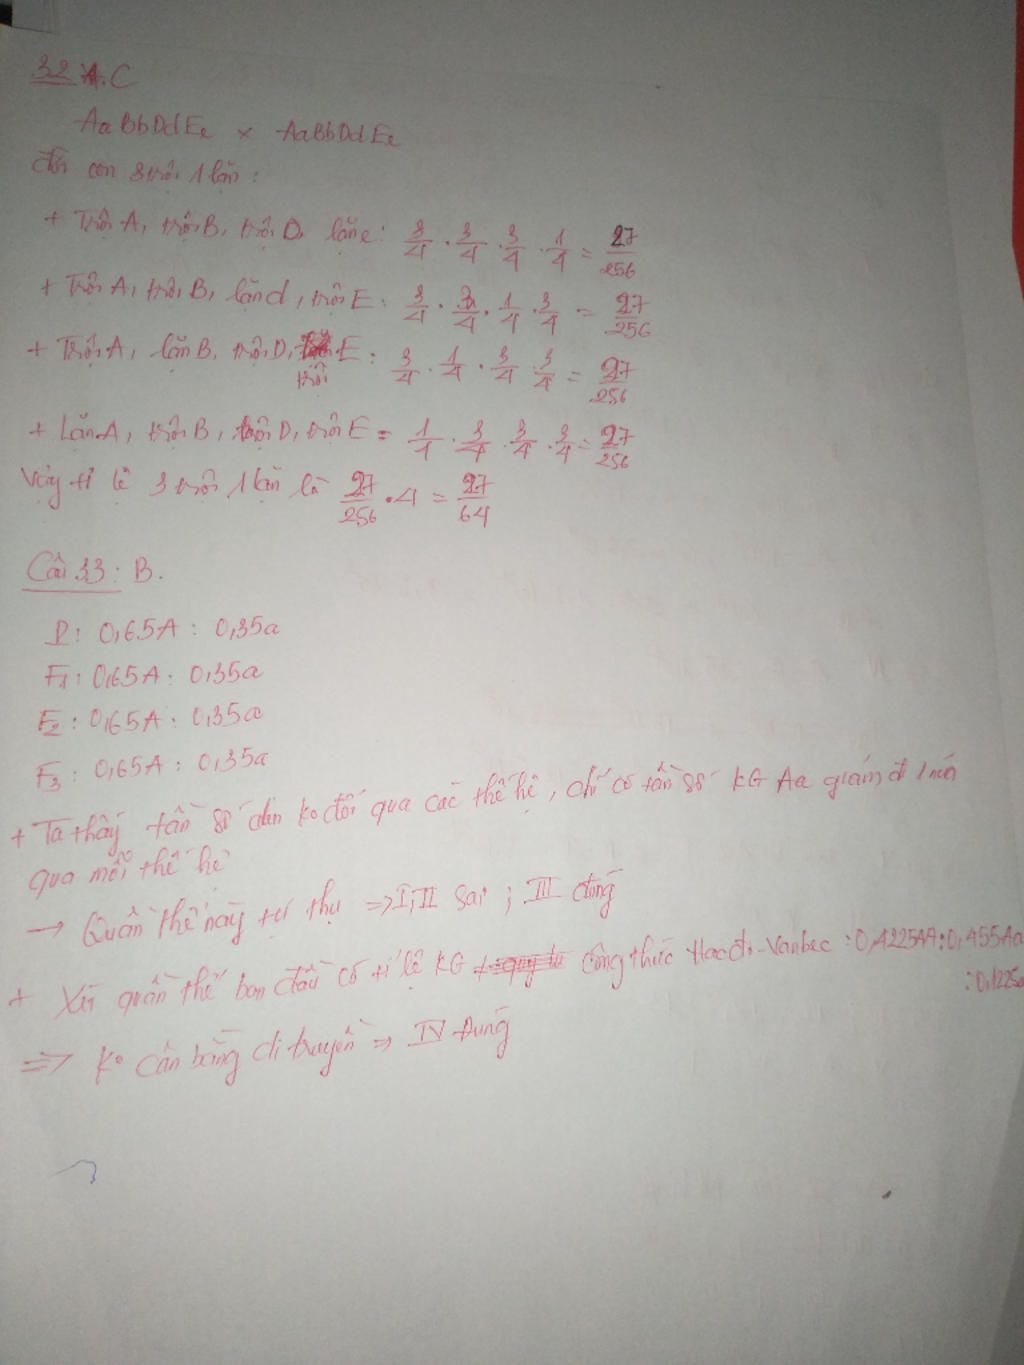 32 A. C
AaBbDdEe × AaBbDdEe
đời con 3 trội 1 lặn :
+ Trội A, trội B, trội D, lặn e: 3/4 . 3/4 . 3/4 . 1/4 = 27/256
+ Trội A, trội B, lặn d, trội E: 3/4 . 3/4 . 1/4 . 3/4 = 27/256
+ Trội A, lặn B, trội D, trội E: 3/4 . 1/4 . 3/4 . 3/4 = 27/256
+ Lặn A, trội B, trội D, trội E = 1/1 . 3/4 . 3/4 . 3/4 = 27/256
Vậy tỉ lệ 3 trội 1 lặn là 27/256 . 4 = 27/64
Câu 33: B.
P: 0,65A : 0,35a
F1: 0,65A : 0,35a
F2: 0,65A : 0,35a
F3: 0,65A : 0,35a
+ Ta thấy tần số alen ko đổi qua các thế hệ, chỉ có tần số KG Aa giảm đi 1 nửa
qua mỗi thế hệ
→ Quần thể này tự thụ => I, II sai ; III đúng
+ Xét quần thể ban đầu có tỉ lệ KG công thức Hacđi-Vanbec : 0,4225AA : 0,455Aa
: 0,1225a
=> Ko cân bằng di truyền => IV Đúng